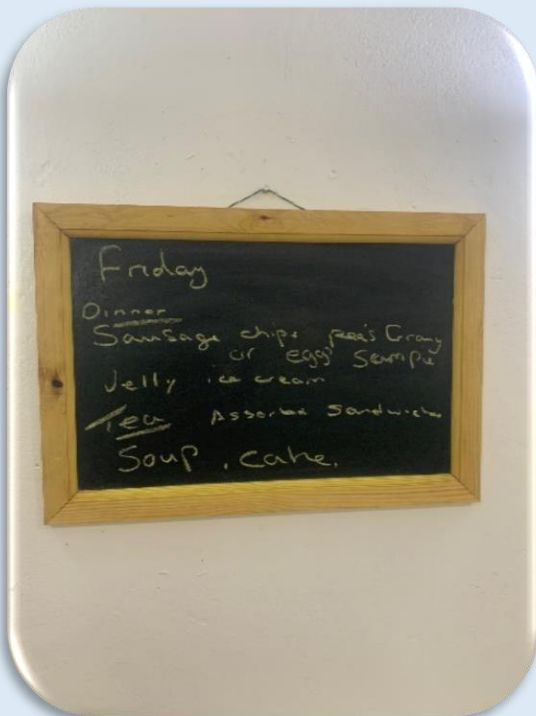 Friday
Dinner
Sausage chips pea's Gravy
or egg
Jelly ice cream
Tea Assorted Sandwiches
Soup . Cake.